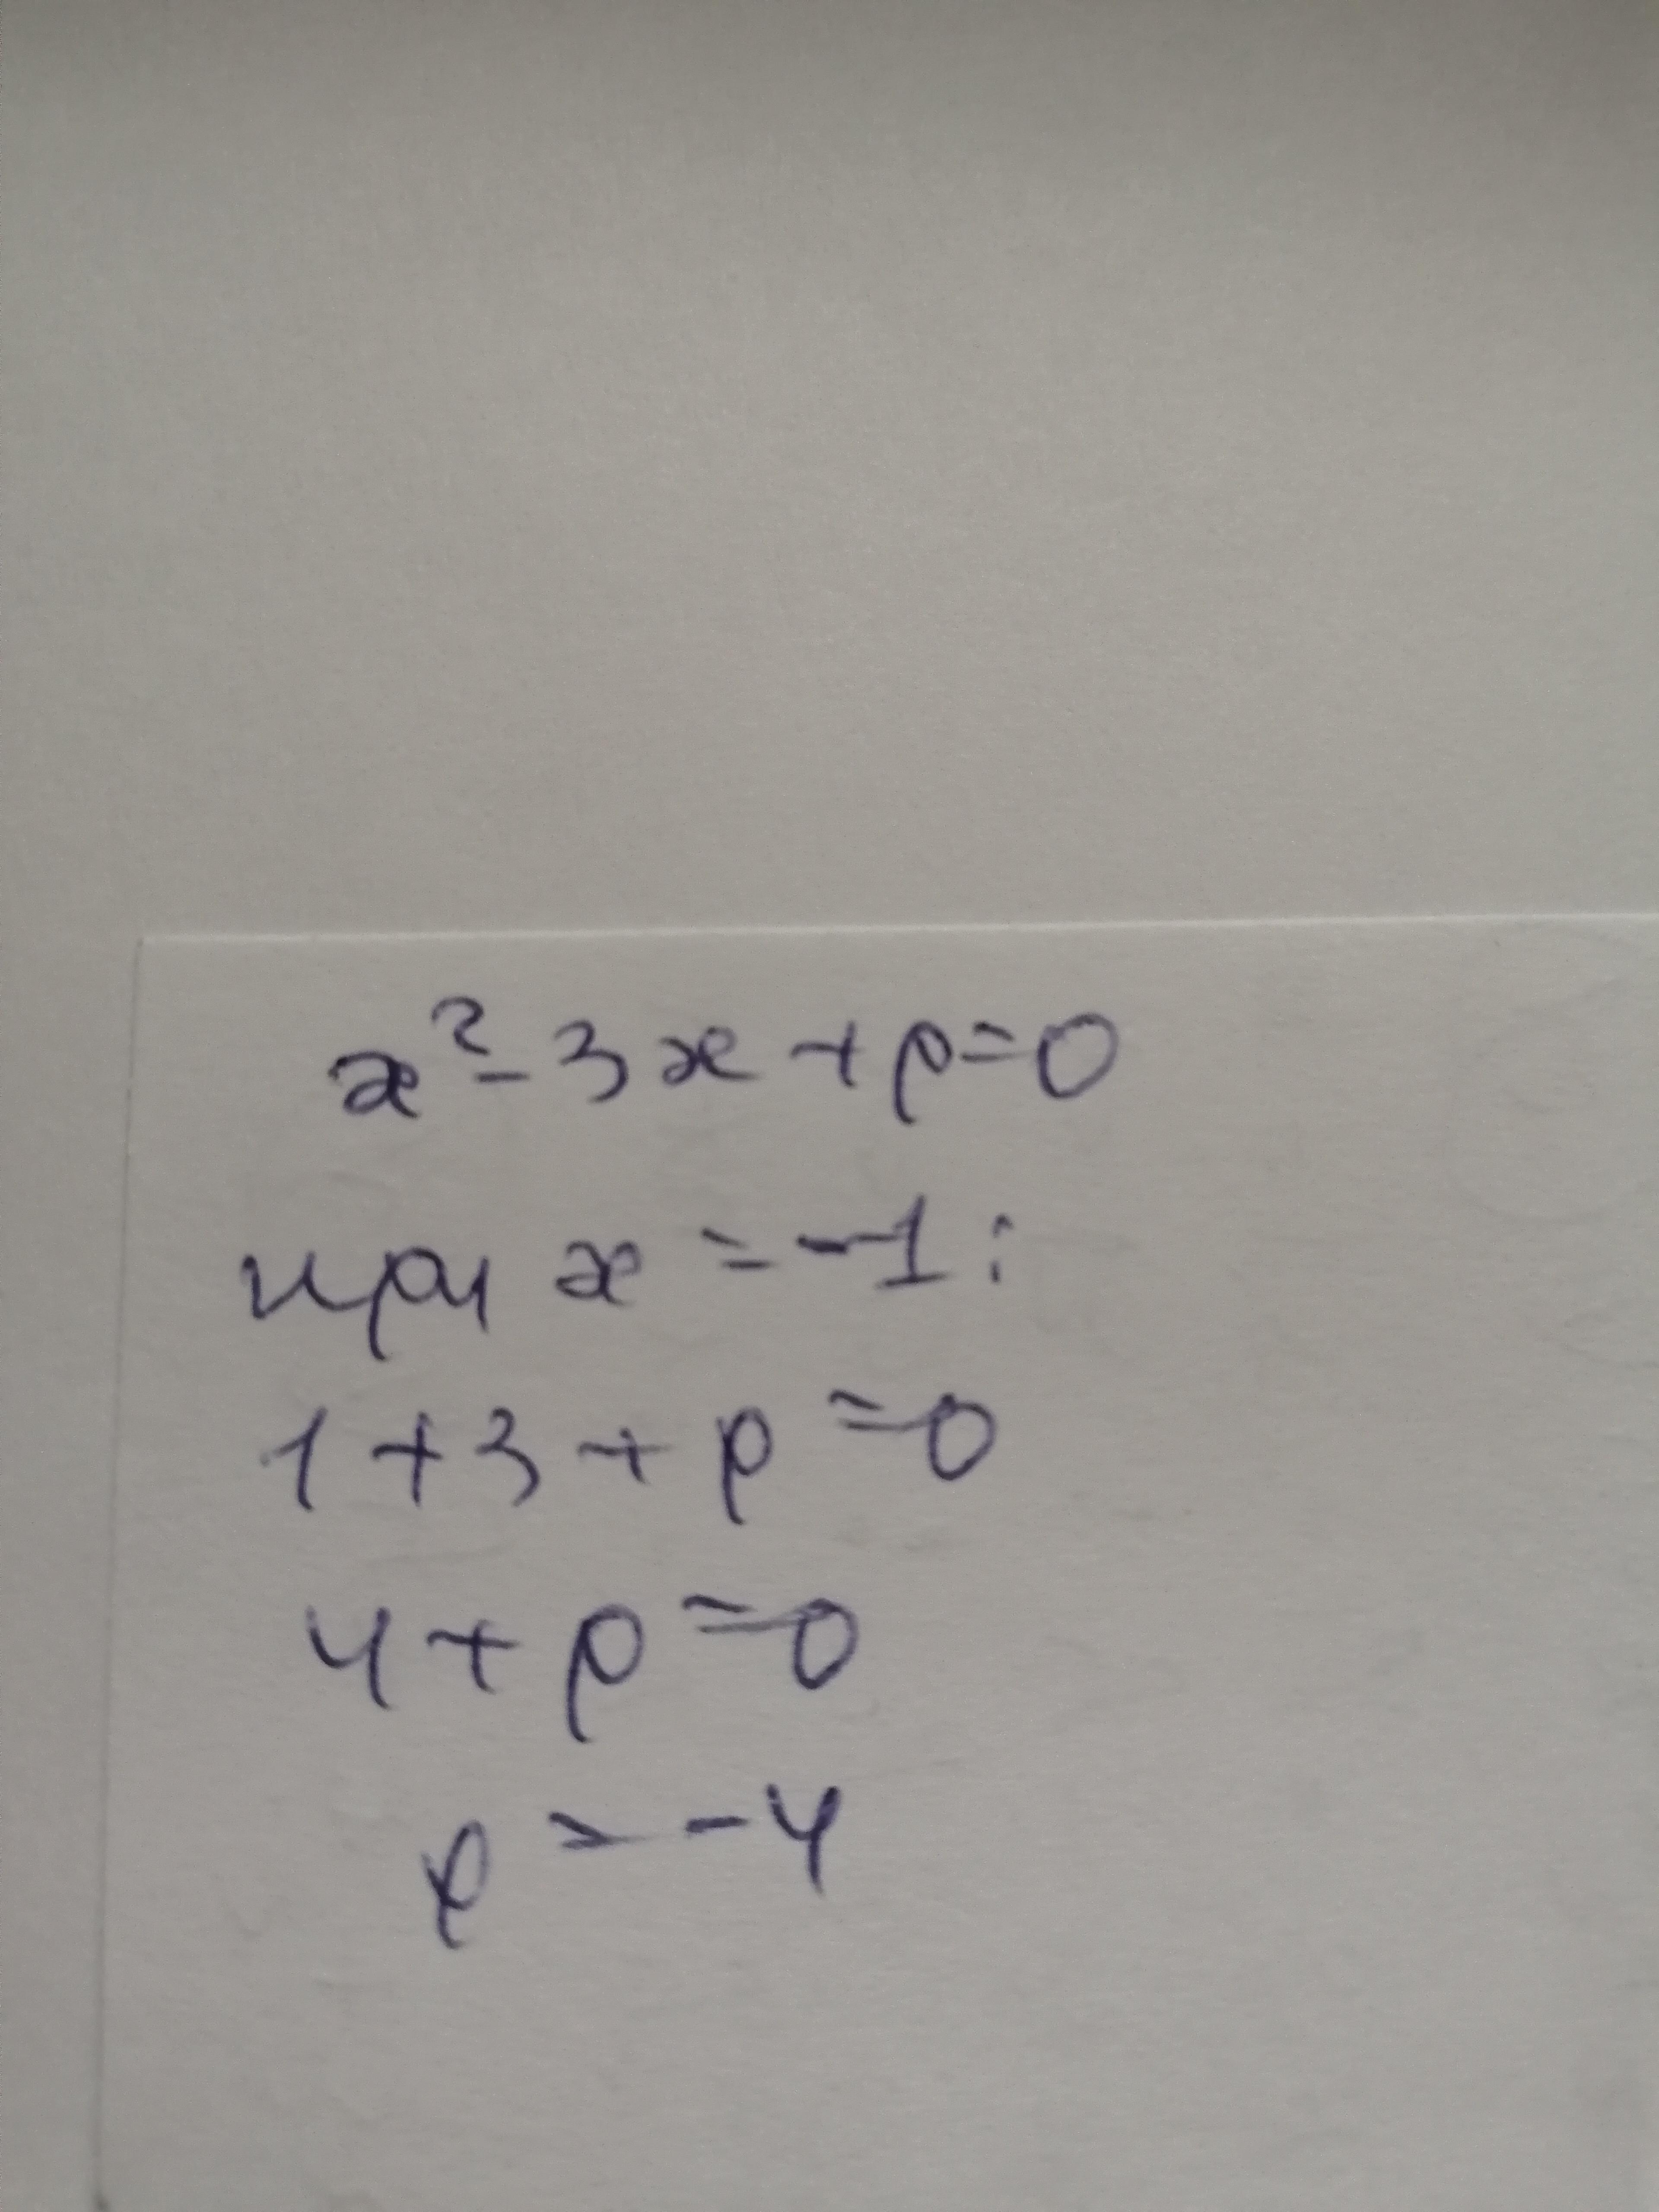 x² - 3x + p = 0
при x = -1:
1 + 3 + p = 0
4 + p = 0
p = -4